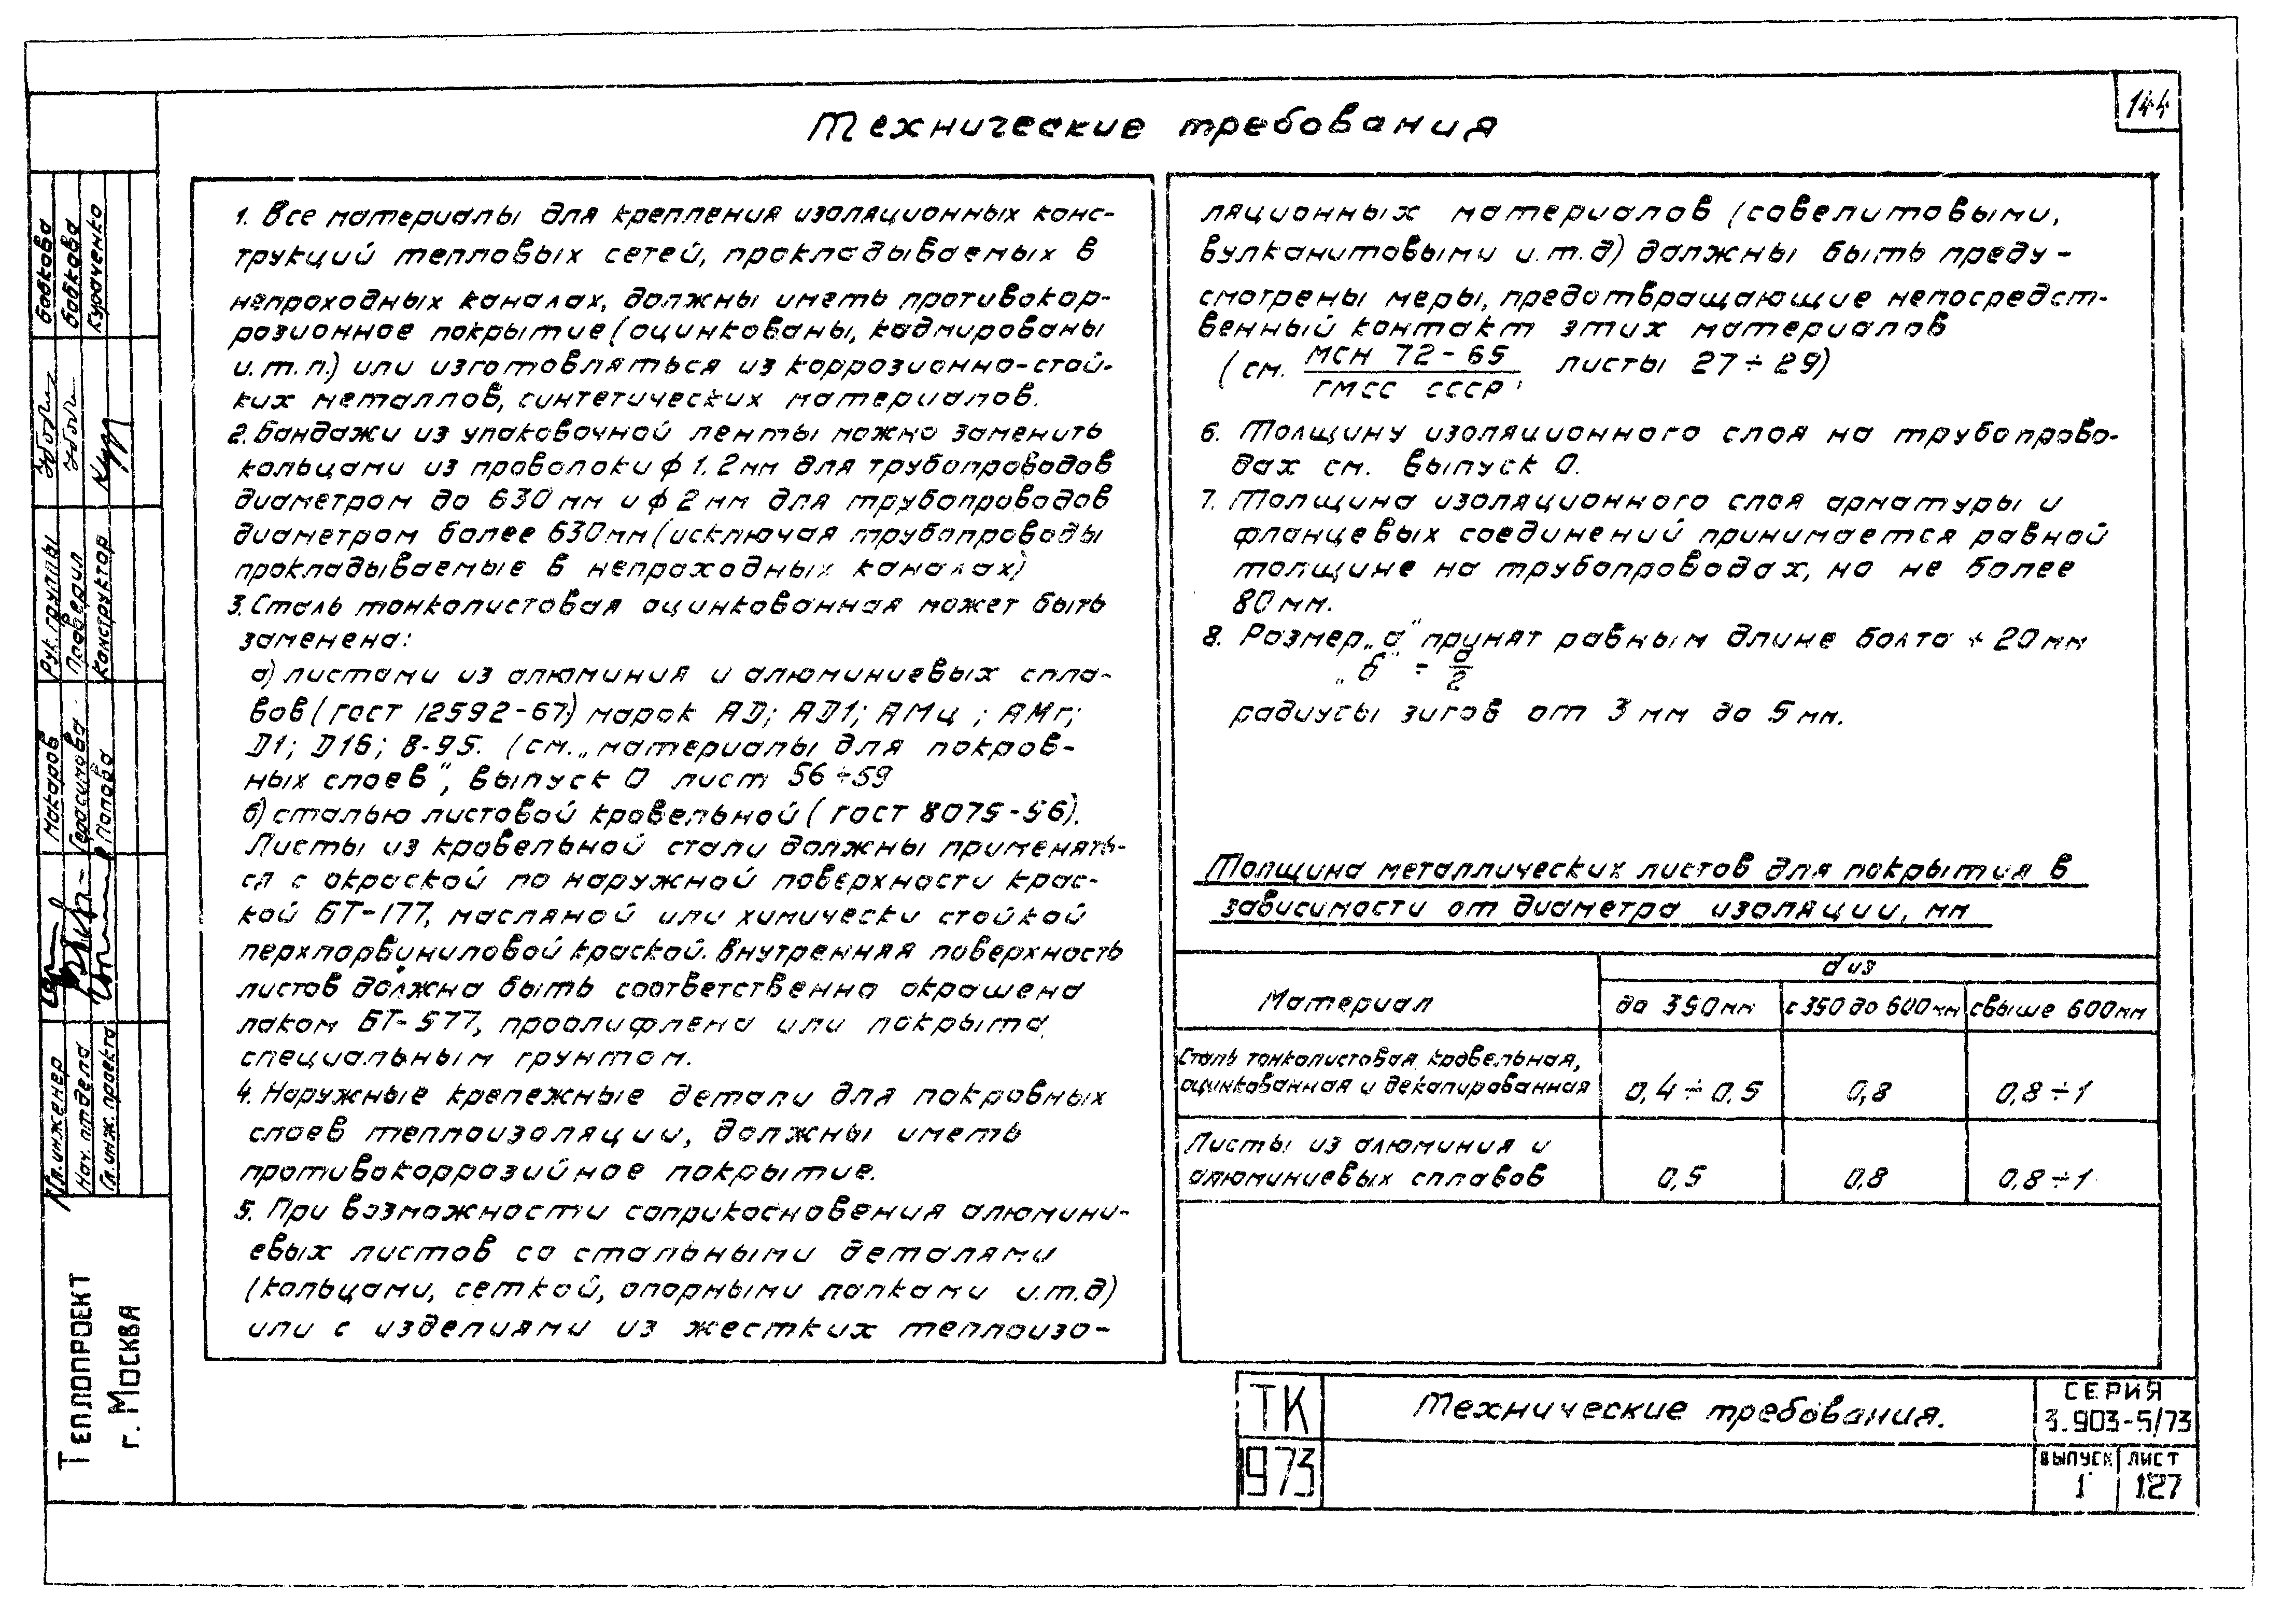 144
Технические требования
1. Все материалы для крепления изоляционных конс-
трукций тепловых сетей, прокладываемых в
непроходных каналах, должны иметь противокор-
розионное покрытие (оцинкованы, кадмированы
и.т.п.) или изготовляться из коррозионно-стой-
ких металлов, синтетических материалов.
2. Бандажи из упаковочной ленты можно заменить
кольцами из проволоки ф 1.2мм для трубопроводов
диаметром до 630 мм и ф 2 мм для трубопроводов
диаметром более 630мм (исключая трубопроводы
прокладываемые в непроходных каналах)
3. Сталь тонколистовая оцинкованная может быть
заменена:
а) листами из алюминия и алюминиевых спла-
вов (гост 12592-67) марок АД; АД1; АМц ; АМг;
Д1; Д16; В-95. (см. „материалы для покров-
ных слоев", выпуск 0 лист 56÷59
б) сталью листовой кровельной (гост 8075-56).
Листы из кровельной стали должны применять-
ся с окраской по наружной поверхности крас-
кой БТ-177, масляной или химически стойкой
перхлорвиниловой краской. Внутренняя поверхность
листов должна быть соответственно окрашена
лаком БТ-577, проолифлена или покрыта
специальным грунтом.
4. Наружные крепежные детали для покровных
слоев теплоизоляции, должны иметь
противокоррозийное покрытие.
5. При возможности соприкосновения алюмини-
евых листов со стальными деталями
(кольцами, сеткой, опорными лапками и.т.д)
или с изделиями из жестких теплоизо-
ляционных материалов (совелитовыми,
вулканитовыми и.т.д) должны быть преду-
смотрены меры, предотвращающие непосредст-
венный контакт этих материалов
(см. МСН 72-65 листы 27÷29)
ГМСС СССР,
6. Толщину изоляционного слоя на трубопрово-
дах см. выпуск 0.
7. Толщина изоляционного слоя арматуры и
фланцевых соединений принимается равной
толщине на трубопроводах, но не более
80 мм.
8. Размер „а" принят равным длине болта + 20 мм
„б" ÷ а/2
радиусы зигов от 3 мм до 5 мм.
Толщина металлических листов для покрытия в
зависимости от диаметра изоляции, мм
Материал
d из
до 350мм
с 350 до 600 мм
свыше 600мм
Сталь тонколистовая кровельная,
оцинкованная и декапированная
0,4÷0,5
0,8
0,8÷1
Листы из алюминия и
алюминиевых сплавов
0,5
0,8
0,8÷1
ТК
1973
Технические требования.
СЕРИЯ
3.903-5/73
ВЫПУСК
1
ЛИСТ
127
Бабкова
Бабкова
Кураченко
Рук. группы
Проверил
Конструктор
Макаров
Герасимова
Попова
Гл. инженер
Нач. отдела
Гл. инж. проекта
ТЕПЛОПРОЕКТ
г. МОСКВА